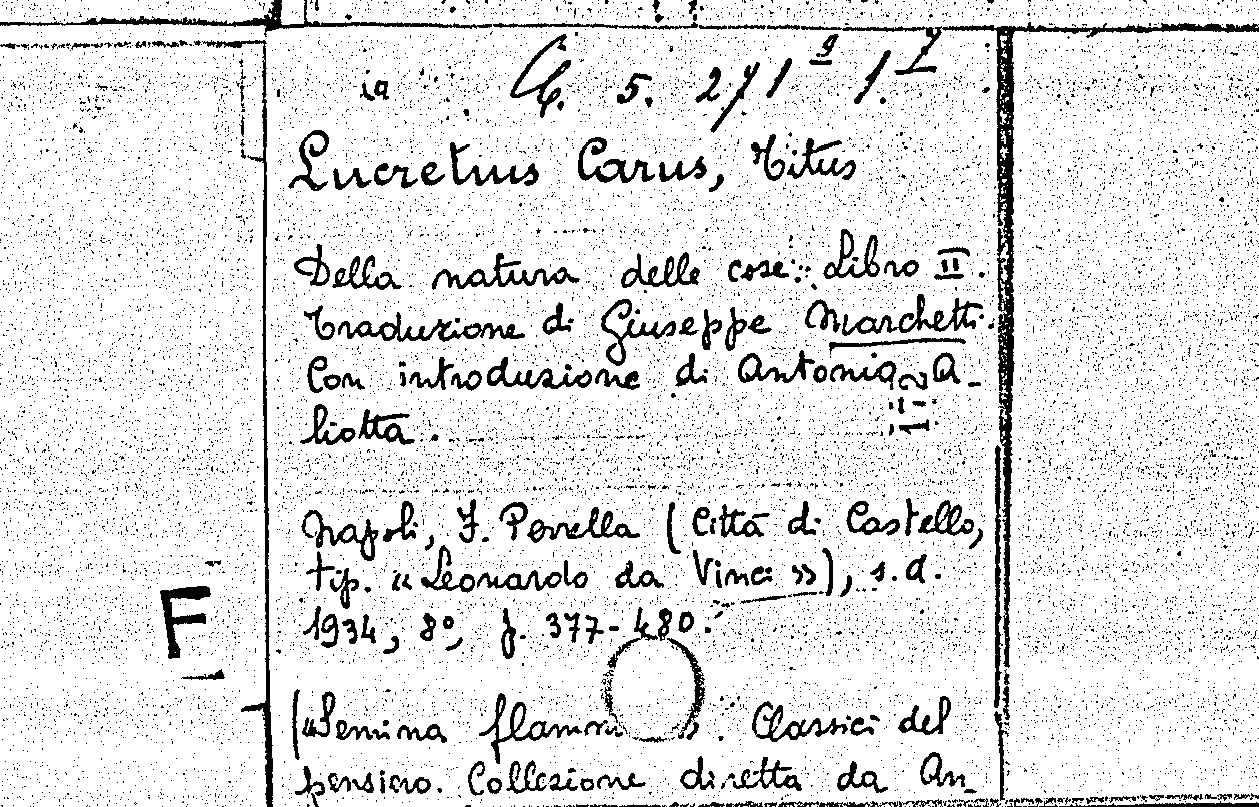 ia
5. 271 9 1. 7
Lucretius Carus, Titus
Della natura delle cose: Libro II.
Traduzione di Giuseppe Marchetti.
Con introduzione di Antonio A-
liotta.
112
Napoli, F. Perrella (Città di Castello,
tip. « Leonardo da Vinci »), s.d.
1934, 8º, p. 377-480.
F
(«Semina . Classici del
pensiero. Collezione diretta da An-